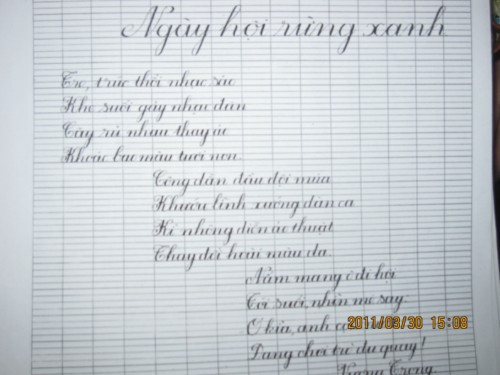 Ngày hội rừng xanh
Tre, trúc thổi nhạc sáo
Khe suối gảy nhạc đàn
Cây rủ nhau thay áo
Khoác bao màu tươi non.
Công dẫn đầu đội múa
Khướu lĩnh xướng dàn ca
Kì nhông diễn ảo thuật
Thay đổi hoài màu da.
Nấm mang ô đi hội
Tới suối, nhìn mê say:
Ơ kìa, anh cọ
Đang chơi trò đu quay!
Vương Trọng
2011/03/30 15:08